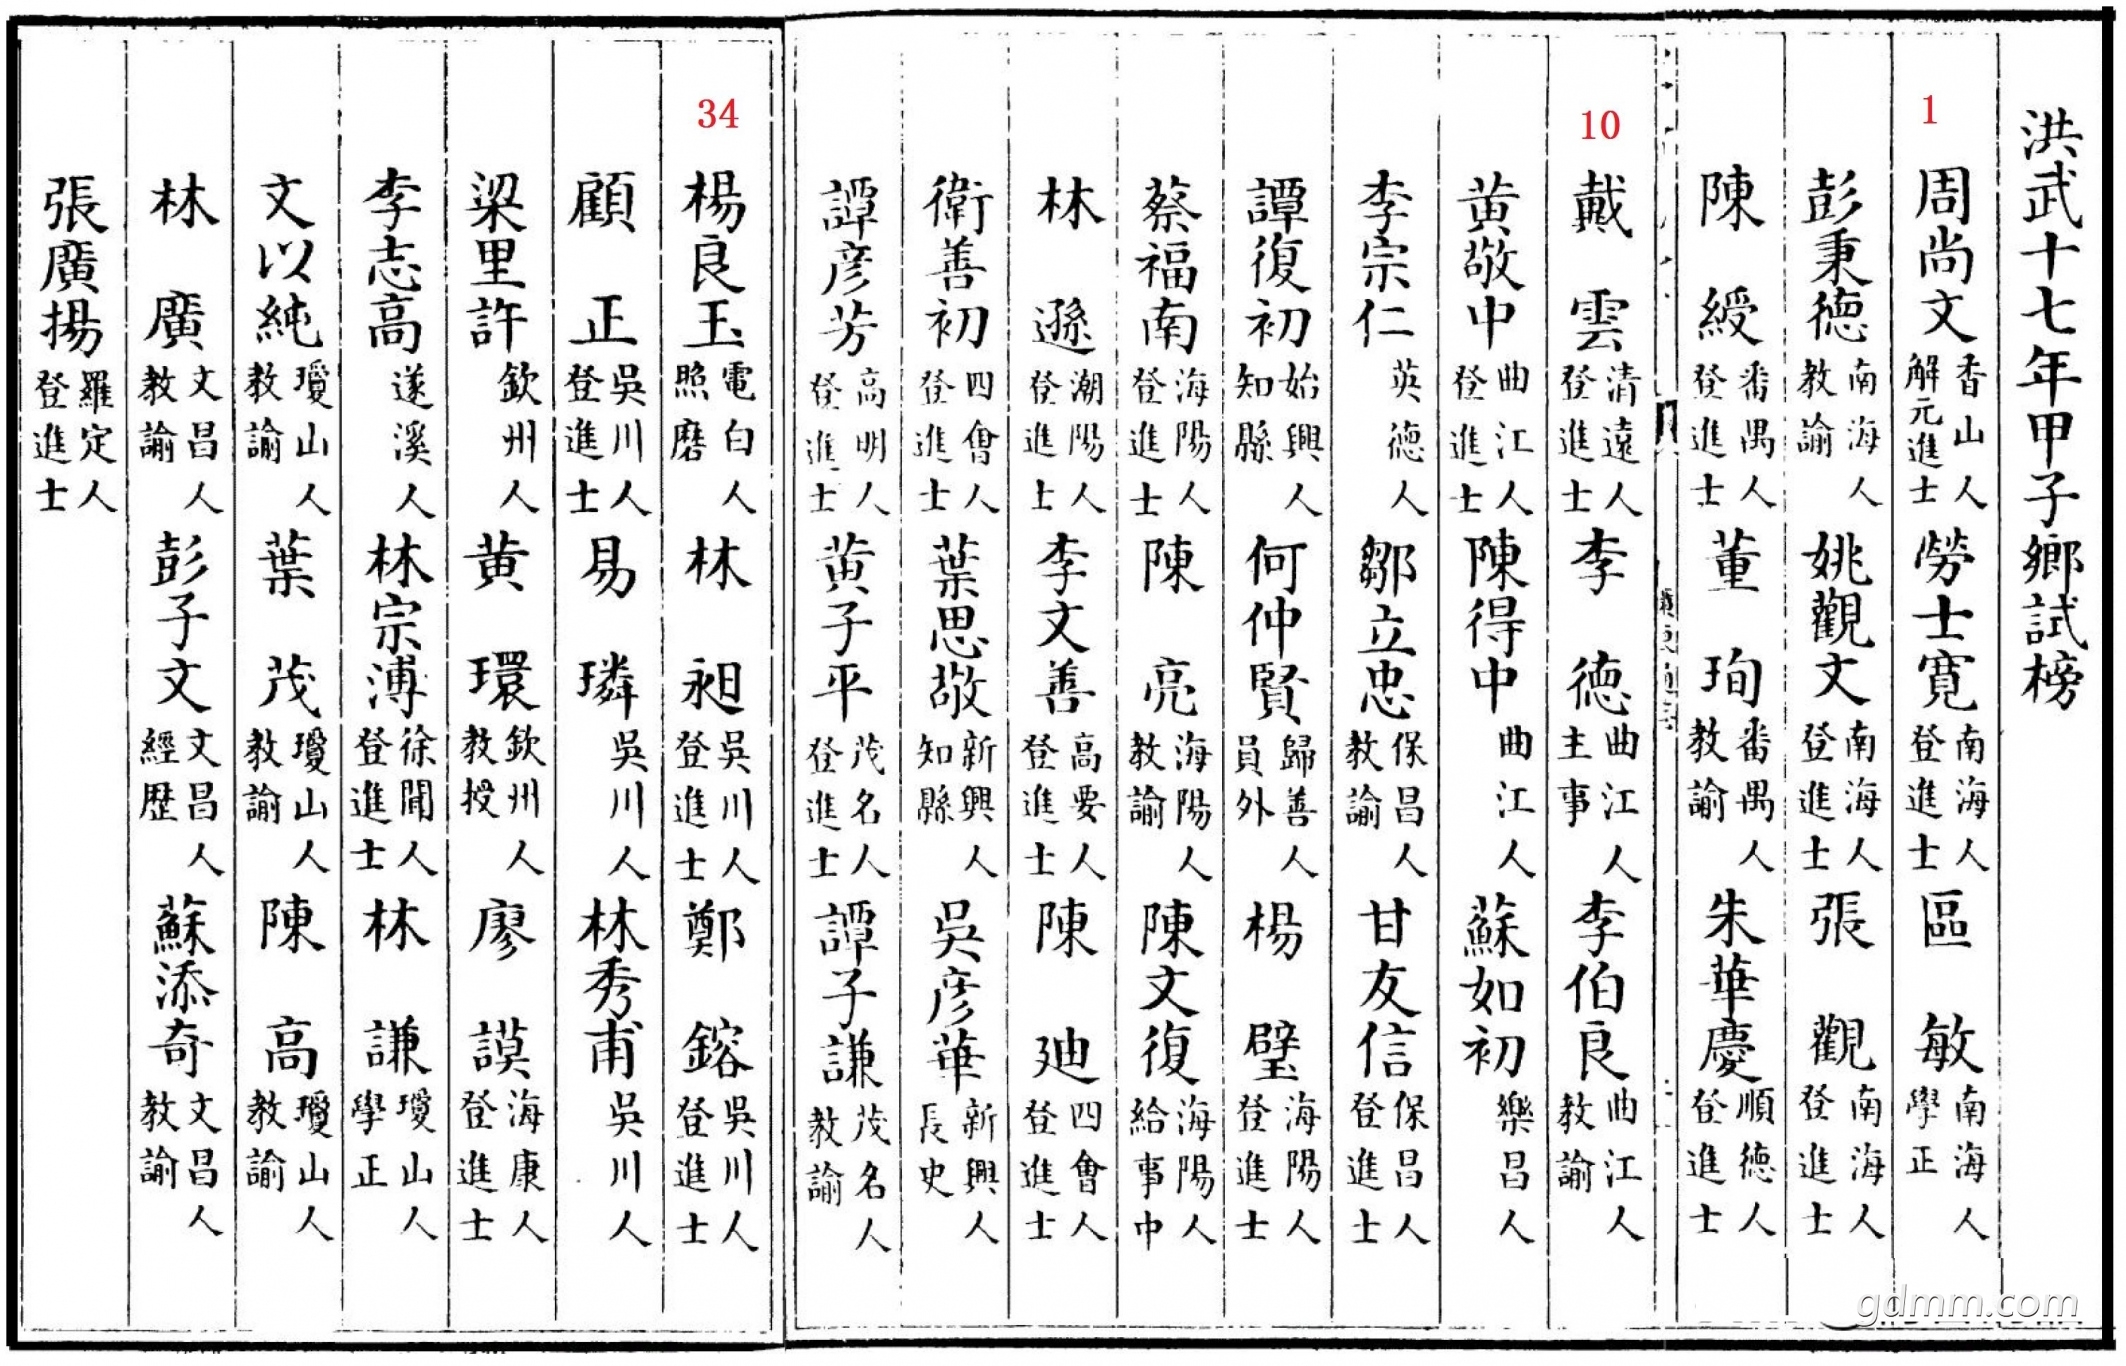 洪武十七年甲子鄉試榜
1
周尚文 香山人 解元進士 勞士寬 南海人 登進士 區敏 南海人 學正
彭秉德 南海人 教諭 姚觀文 南海人 登進士 張觀 南海人 登進士
陳綬 番禺人 登進士 董珣 番禺人 教諭 朱華慶 順德人 登進士
10
戴雲 清遠人 登進士 李德 曲江人 主事 李伯良 曲江人 教諭
黄敬中 曲江人 登進士 陳得中 曲江人 蘇如初 樂昌人
李宗仁 英德人 鄒立忠 保昌人 教諭 甘友信 保昌人 登進士
譚復初 始興人 知縣 何仲賢 歸善人 員外 楊璧 海陽人 登進士
蔡福南 海陽人 登進士 陳亮 海陽人 教諭 陳文復 海陽人 給事中
林遜 潮陽人 登進士 李文善 高要人 登進士 陳廸 四會人 登進士
衛善初 四會人 登進士 葉思敬 新興人 知縣 吳彦華 新興人 長史
譚彦芳 高明人 登進士 黄子平 茂名人 登進士 譚子謙 茂名人 教諭
34
楊良玉 電白人 照磨 林昶 吳川人 登進士 鄭鎔 吳川人 登進士
顧正 吳川人 登進士 易璘 吳川人 林秀甫 吳川人
梁里許 欽州人 黄環 欽州人 教授 廖謨 海康人 登進士
李志高 遂溪人 林宗溥 徐聞人 登進士 林謙 瓊山人 學正
文以純 瓊山人 教諭 葉茂 瓊山人 教諭 陳高 瓊山人 教諭
林廣 文昌人 教諭 彭子文 文昌人 經歷 蘇添奇 文昌人 教諭
張廣揚 羅定人 登進士
gdmm.com